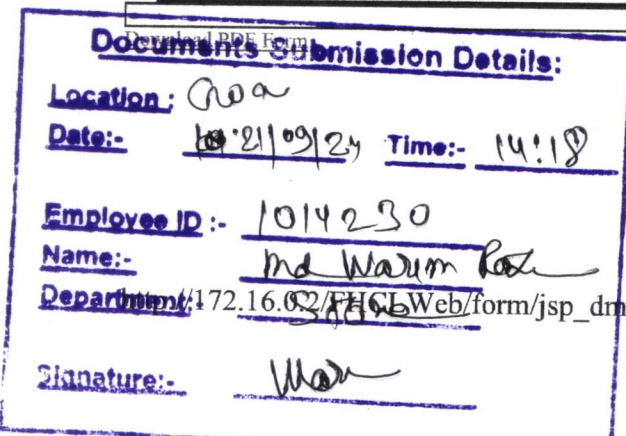 Download PDF Form
Documents Submission Details:
Location : Goa
Date:- 21/09/24 Time:- 14:18
Employee ID :- 1014230
Name:- Md Wasim
Department:-
http://172.16.0.2/FHCLWeb/form/jsp_dm
Signature:-